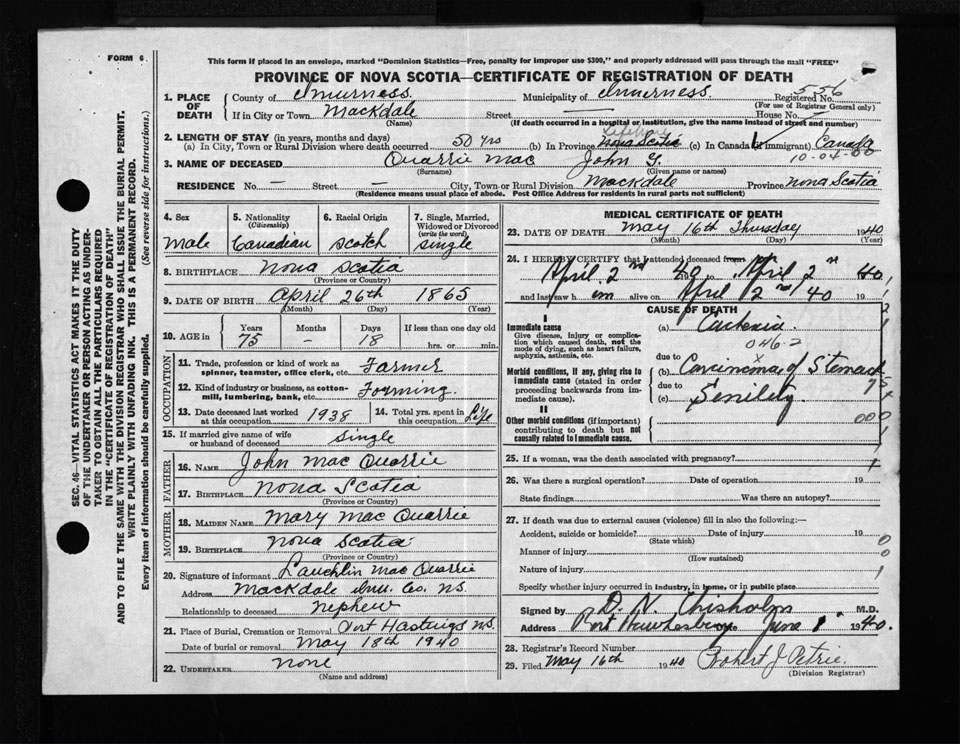 FORM 6
This form if placed in an envelope, marked "Dominion Statistics—Free, penalty for improper use $300," and properly addressed will pass through the mail "FREE"
PROVINCE OF NOVA SCOTIA—CERTIFICATE OF REGISTRATION OF DEATH
556
1. PLACE OF DEATH County of Inverness. Municipality of Inverness. Registered No.
(For use of Registrar General only)
If in City or Town Mackdale Street — House No.
(Name) (If death occurred in a hospital or institution, give the name instead of street and number)
2. LENGTH OF STAY (in years, months and days)
Lifetime
(a) In City, Town or Rural Division where death occurred 50 yrs (b) In Province Nova Scotia (c) In Canada (if immigrant) Canada
10-04-00
3. NAME OF DECEASED Quarrie Mac John Y.
(Surname) (Given name or names)
RESIDENCE No. — Street — City, Town or Rural Division Mackdale Province Nova Scotia
(Residence means usual place of abode. Post Office Address for residents in rural parts not sufficient)
4. Sex
Male
5. Nationality
(Citizenship)
Canadian
6. Racial Origin
Scotch
7. Single, Married, Widowed or Divorced
(write the word)
Single
8. BIRTHPLACE Nova Scotia
(Province or Country)
9. DATE OF BIRTH April 26th 1865
(Month) (Day) (Year)
10. AGE in Years Months Days If less than one day old
75 — 18 hrs. or min.
OCCUPATION
11. Trade, profession or kind of work as spinner, teamster, office clerk, etc. Farmer
12. Kind of industry or business, as cotton-mill, lumbering, bank, etc. Forming
13. Date deceased last worked at this occupation 1938 14. Total yrs. spent in this occupation Life
15. If married give name of wife or husband of deceased Single
FATHER
16. NAME John Mac Quarrie
17. BIRTHPLACE Nova Scotia
(Province or Country)
MOTHER
18. MAIDEN NAME Mary Mac Quarrie
19. BIRTHPLACE Nova Scotia
(Province or Country)
20. Signature of informant Lauchlin Mac Quarrie
Address Mackdale Inv. Co. N.S.
Relationship to deceased nephew
21. Place of Burial, Cremation or Removal Port Hastings N.S.
Date of burial or removal May 18th 1940
22. UNDERTAKER None
(Name and address)
MEDICAL CERTIFICATE OF DEATH
23. DATE OF DEATH May 16th Thursday 1940
(Month) (Day) (Year)
24. I HEREBY CERTIFY that I attended deceased from
April 2nd 1940 to April 2nd 1940
and last saw him alive on April 2nd/40 19
CAUSE OF DEATH
I
Immediate cause
Give disease, injury or complication which caused death, not the mode of dying, such as heart failure, asphyxia, asthenia, etc.
(a) Cachexia
046-2
due to
Morbid conditions, if any, giving rise to immediate cause (stated in order proceeding backwards from immediate cause).
(b) Carcinoma of Stomach
due to
(c) Senility
II
Other morbid conditions (if important) contributing to death but not causally related to immediate cause.
000
25. If a woman, was the death associated with pregnancy?
26. Was there a surgical operation? Date of operation 19
State findings Was there an autopsy?
27. If death was due to external causes (violence) fill in also the following:—
Accident, suicide or homicide? Date of injury 19
(State which)
Manner of injury
(How sustained)
Nature of injury
Specify whether injury occurred in industry, in home, or in public place
Signed by D. N. Chisholm M.D.
Address Port Hawkesbury June 1 1940.
28. Registrar's Record Number
29. Filed May 16th 1940 Robert J. Petrie.
(Division Registrar)
SEC. 46—VITAL STATISTICS ACT MAKES IT THE DUTY
OF THE UNDERTAKER OR PERSON ACTING AS UNDER-
TAKER TO OBTAIN ALL THE PARTICULARS REQUIRED
IN THE "CERTIFICATE OF REGISTRATION OF DEATH"
AND TO FILE THE SAME WITH THE DIVISION REGISTRAR WHO SHALL ISSUE THE BURIAL PERMIT.
WRITE PLAINLY WITH UNFADING INK. THIS IS A PERMANENT RECORD.
Every item of information should be carefully supplied. (See reverse side for instructions.)